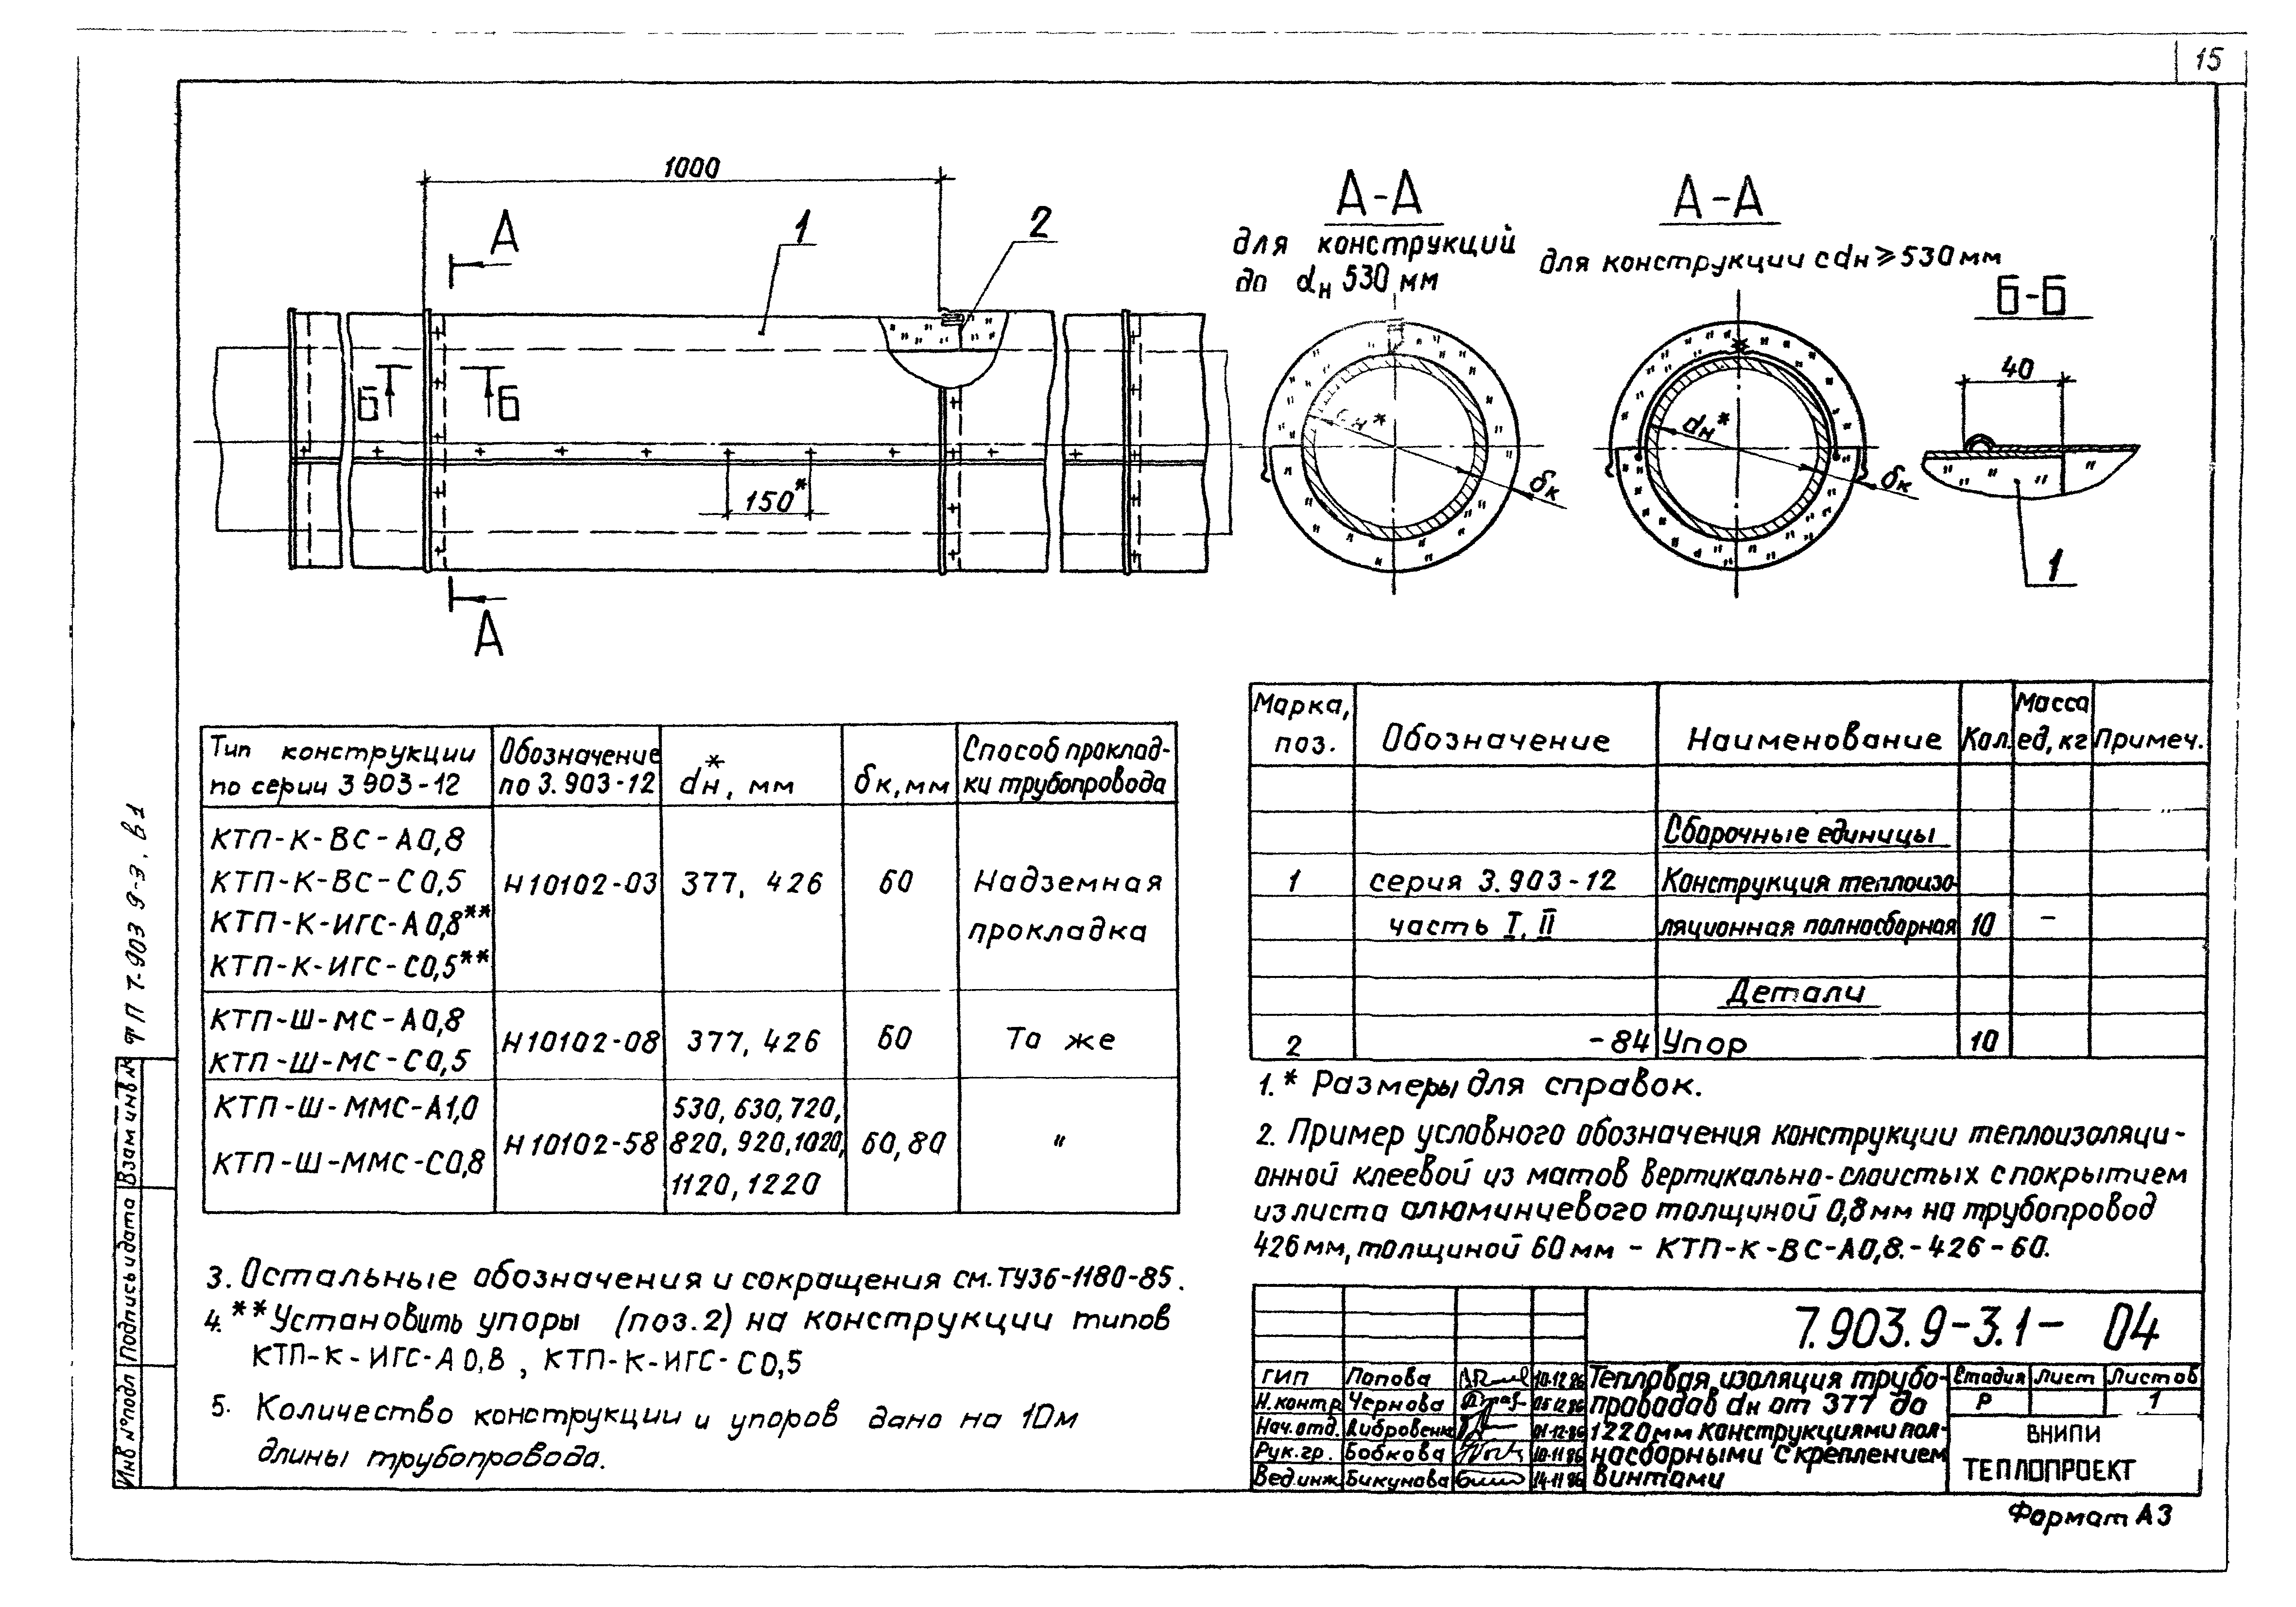 15
1000
А
1
2
А-А
для конструкций
до dн 530 мм
А-А
для конструкции с dн ≥ 530 мм
Б-Б
40
Б
Б
150*
dн*
δк
δк
1
А
Тип конструкции
по серии 3 903-12
Обозначение
по 3.903-12
dн*, мм
δк, мм
Способ проклад-
ки трубопровода
КТП-К-ВС-А0,8
КТП-К-ВС-С0,5
КТП-К-ИГС-А0,8**
КТП-К-ИГС-С0,5**
Н10102-03
377, 426
60
Надземная
прокладка
КТП-Ш-МС-А0,8
КТП-Ш-МС-С0,5
Н10102-08
377, 426
60
То же
КТП-Ш-ММС-А1,0
КТП-Ш-ММС-С0,8
Н10102-58
530, 630, 720,
820, 920, 1020,
1120, 1220
60, 80
"
Марка,
поз.
Обозначение
Наименование
Кол.
Масса
ед, кг
Примеч.
Сборочные единицы
1
серия 3.903-12
Конструкция теплоизо-
часть I, II
ляционная полносборная
10
–
Детали
2
-84
Упор
10
1.* Размеры для справок.
2. Пример условного обозначения конструкции теплоизоляци-
онной клеевой из матов вертикально-слоистых с покрытием
из листа алюминиевого толщиной 0,8 мм на трубопровод
426 мм, толщиной 60 мм - КТП-К-ВС-А0,8.-426-60.
3. Остальные обозначения и сокращения см. ТУ36-1180-85.
4. ** Установить упоры (поз.2) на конструкции типов
КТП-К-ИГС-А0,8, КТП-К-ИГС-С0,5
5. Количество конструкции и упоров дано на 10м
длины трубопровода.
7.903.9-3.1- 04
ГИП Попова 10.12.86
Н.контр Чернова 05.12.86
Нач.отд. 01-12-86
Рук.гр. Бобкова 10-11-86
Вед.инж. Бикунова 14-11 86
Тепловая изоляция трубо-
проводов dн от 377 до
1220мм конструкциями пол-
носборными с креплением
винтами
Стадия Лист Листов
Р 1
ВНИПИ
ТЕПЛОПРОЕКТ
Формат А3
ТП 7-903 9-3. В1
Взам инв №
Подпись и дата
Инв № подл